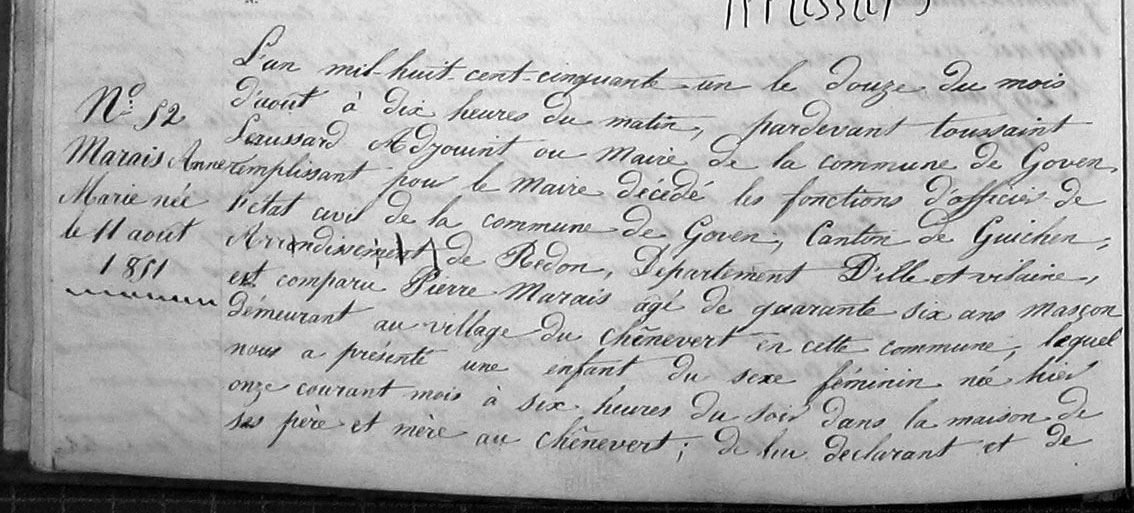 N.º 52
Marais Anne
Marie née
le 11 août
1851
L'an mil-huit-cent-cinquante-un le douze du mois
d'août à dix heures du matin, pardevant toussaint
Adjouint ou Maire de la commune de Goven,
remplissant pour le Maire décédé les fonctions d'officier de
l'état civil de la commune de Goven, Canton de Guichen,
Arrondissement de Redon, Département D'ille et vilaine,
est comparu Pierre Marais agé de quarante six ans masçon
démeurant au village du chênevert en cette commune, lequel
nous a présenté une enfant du sexe féminin née hier
onze courant mois à six heures du soir dans la maison de
ses père et mère au chênevert; de lui declarant et de